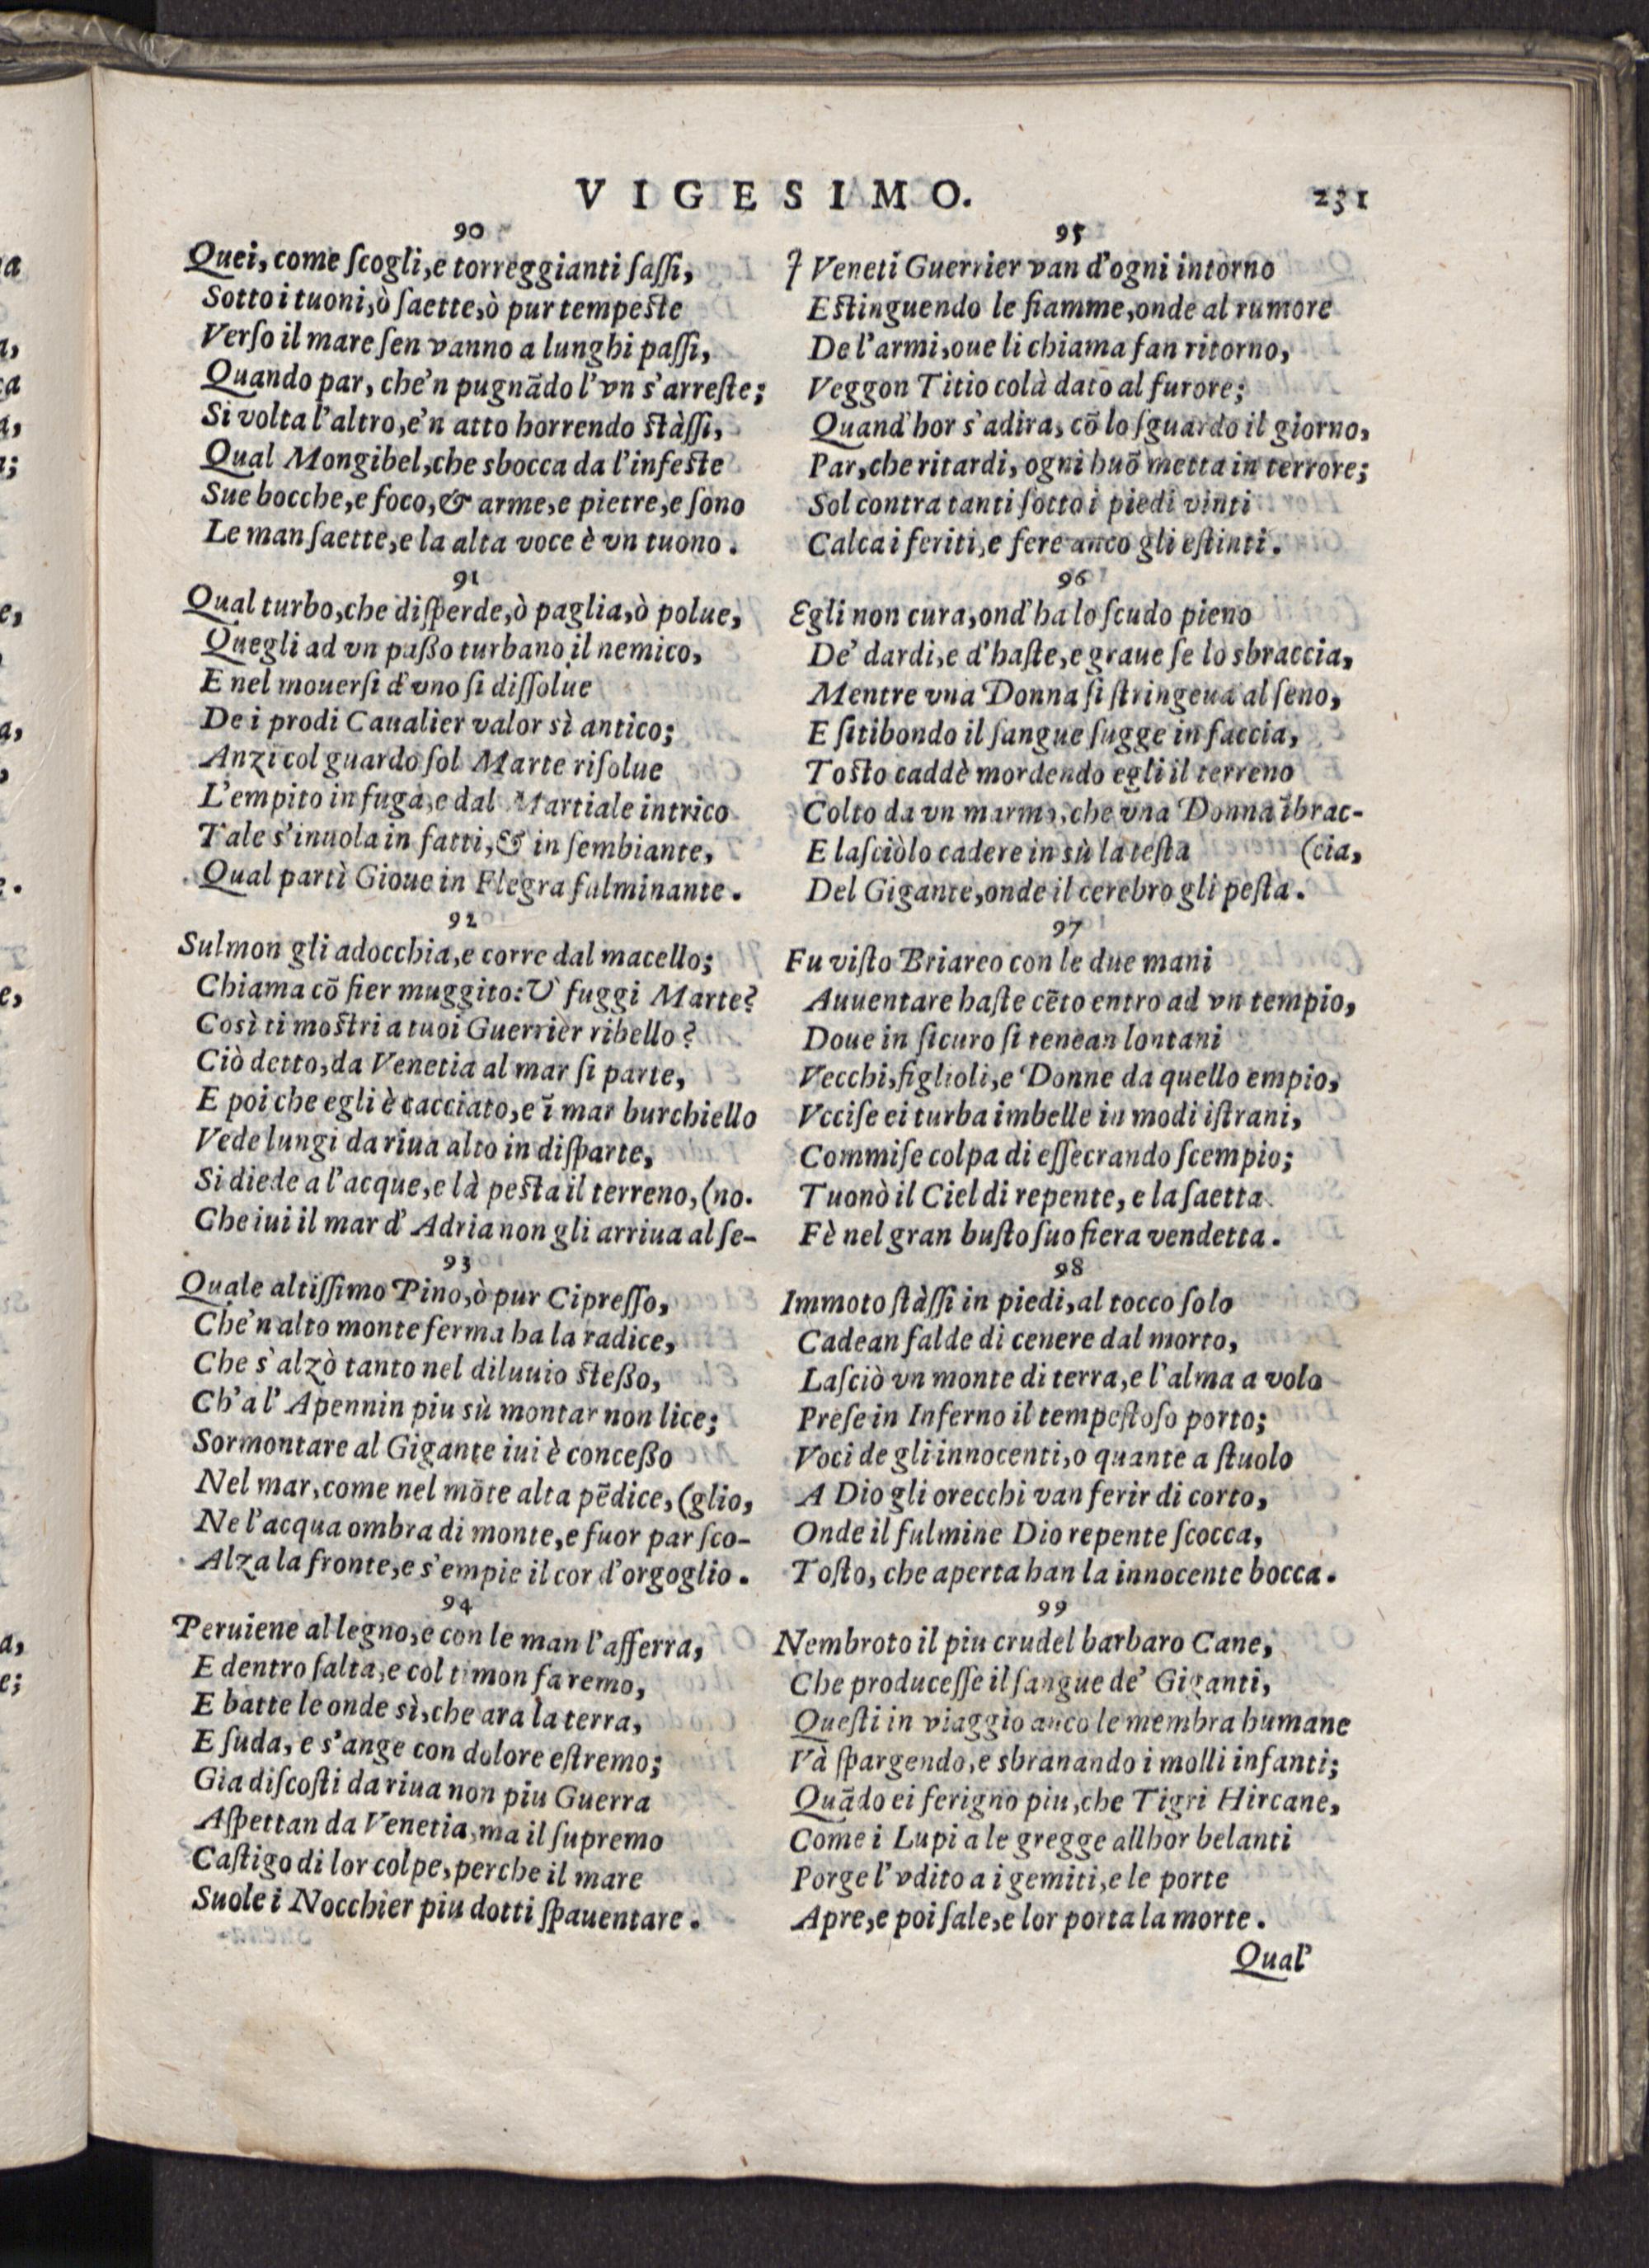 VIGESIMO. 231
90
Quei, come ſcogli, e torreggianti ſaſſi,
Sotto i tuoni, ò ſaette, ò pur tempeſte
Verſo il mare ſen vanno a lunghi paſſi,
Quando par, che'n pugnãdo l'vn s'arreſte;
Si volta l'altro, e'n atto horrendo ſtàſſi,
Qual Mongibel, che sbocca da l'infeſte
Sue bocche, e foco, & arme, e pietre, e ſono
Le man ſaette, e la alta voce è vn tuono.
91
Qual turbo, che diſperde, ò paglia, ò polue,
Quegli ad vn paßo turbano il nemico,
E nel mouerſi d'vno ſi diſſolue
De i prodi Caualier valor sì antico;
Anzi col guardo ſol Marte riſolue
L'empito in fuga, e dal Martiale intrico
Tale s'inuola in fatti, & in ſembiante,
Qual partì Gioue in Flegra fulminante.
92
Sulmon gli adocchia, e corre dal macello;
Chiama cõ fier muggito: V' fuggi Marte?
Così ti moſtri a tuoi Guerrièr ribello?
Ciò detto, da Venetia al mar ſi parte,
E poi che egli è cacciato, e ĩ mar burchiello
Vede lungi da riua alto in diſparte,
Si diede a l'acque, e là peſta il terreno, (no.
Che iui il mar d'Adria non gli arriua al ſe-
93
Quale altiſſimo Pino, ò pur Cipreſſo,
Che'n alto monte ferma ha la radice,
Che s'alzò tanto nel diluuio ſteßo,
Ch'a l'Apennin piu sù montar non lice;
Sormontare al Gigante iui è conceßo
Nel mar, come nel mõte alta pẽdice, (glio,
Ne l'acqua ombra di monte, e fuor par ſco-
Alza la fronte, e s'empie il cor d'orgoglio.
94
Peruiene al legno, e con le man l'afferra,
E dentro ſalta, e col timon fa remo,
E batte le onde sì, che ara la terra,
E ſuda, e s'ange con dolore eſtremo;
Gia diſcoſti da riua non piu Guerra
Aſpettan da Venetia, ma il ſupremo
Caſtigo di lor colpe, perche il mare
Suole i Nocchier piu dotti ſpauentare.
95
I Veneti Guerrier van d'ogni intorno
Eſtinguendo le fiamme, onde al rumore
De l'armi, oue li chiama fan ritorno,
Veggon Titio colà dato al furore;
Quand'hor s'adira, cõ lo ſguardo il giorno,
Par, che ritardi, ogni huõ metta in terrore;
Sol contra tanti ſotto i piedi vinti
Calca i feriti, e fere anco gli eſtinti.
96
Egli non cura, ond'ha lo ſcudo pieno
De' dardi, e d'haſte, e graue ſe lo sbraccia,
Mentre vna Donna ſi ſtringeua al ſeno,
E ſitibondo il ſangue ſugge in faccia,
Toſto caddè mordendo egli il terreno
Colto da vn marmo, che vna Donna ĩbrac-
E laſciòlo cadere in sù la teſta (cia,
Del Gigante, onde il cerebro gli peſta.
97
Fu viſto Briareo con le due mani
Auuentare haſte cẽto entro ad vn tempio,
Doue in ſicuro ſi tenean lontani
Vecchi, figlioli, e Donne da quello empio,
Vcciſe ei turba imbelle in modi iſtrani,
Commiſe colpa di eſſecrando ſcempio;
Tuonò il Ciel di repente, e la ſaetta
Fè nel gran buſto ſuo fiera vendetta.
98
Immoto ſtàſſi in piedi, al tocco ſolo
Cadean falde di cenere dal morto,
Laſciò vn monte di terra, e l'alma a volo
Preſe in Inferno il tempeſtoſo porto;
Voci de gli innocenti, o quante a ſtuolo
A Dio gli orecchi van ferir di corto,
Onde il fulmine Dio repente ſcocca,
Toſto, che aperta han la innocente bocca.
99
Nembroto il piu crudel barbaro Cane,
Che produceſſe il ſangue de' Giganti,
Queſti in viaggio anco le membra humane
Và ſpargendo, e sbranando i molli infanti;
Quãdo ei ferigno piu, che Tigri Hircane,
Come i Lupi a le gregge allhor belanti
Porge l'vdito a i gemiti, e le porte
Apre, e poi ſale, e lor porta la morte.
Qual'